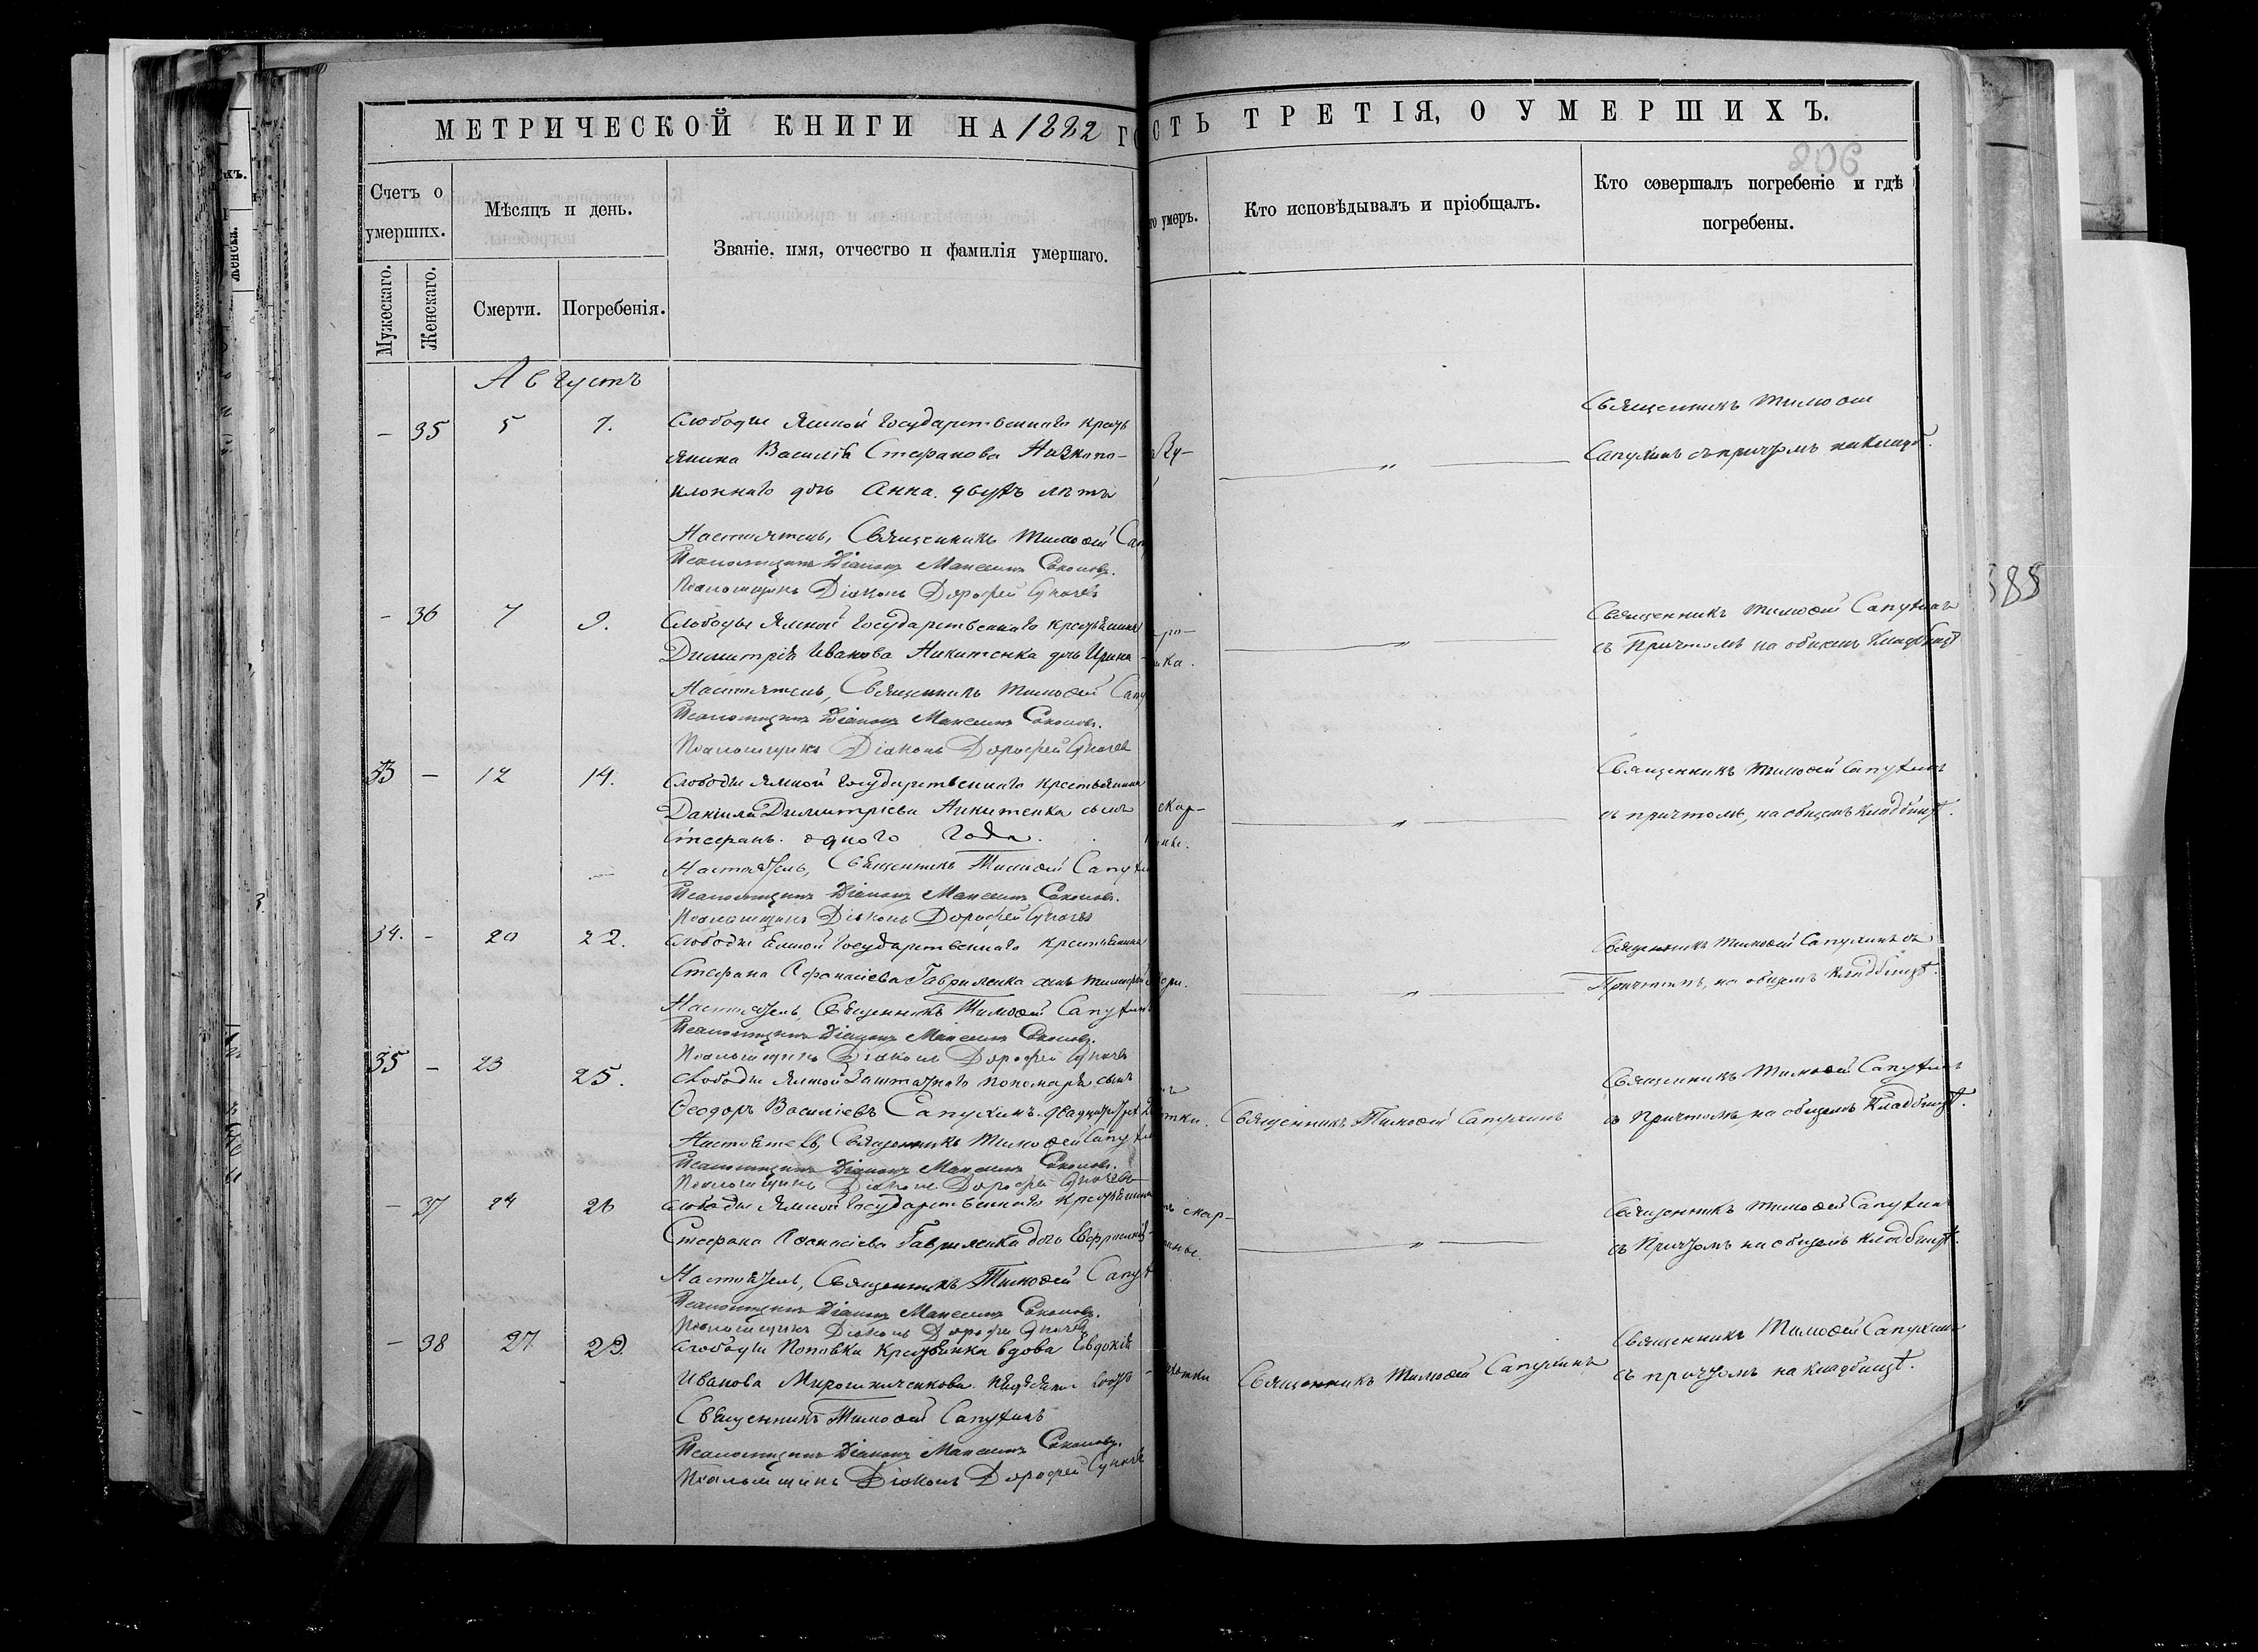 МЕТРИЧЕСКОЙ КНИГИ НА 1882 ГО
СТЬ ТРЕТІЯ, О УМЕРШИХЪ.
206
Счетъ о умершихъ.
Мужескаго.
Женскаго.
Мѣсяцъ и день.
Смерти.
Погребенія.
Званіе, имя, отчество и фамилія умершаго.
го умеръ.
Кто исповѣдывалъ и пріобщалъ.
Кто совершалъ погребеніе и гдѣ
погребены.
Августъ
— 35 5 7. Слободы Ямной Государственнаго кресть
янина Василія Стефанова Низкопо-
клоннаго дочь Анна. двухъ лѣтъ
Священникъ Тимоѳей
Сапухинъ съ причтомъ на кладб.
Настоятель, Священникъ Тимоѳей Сап
Псаломщикъ Діаконъ Максимъ
Псаломщикъ Діаконъ Дорофей
— 36 7 9. Слободы Ямной Государственнаго крестьянина
Димитрія Иванова Никитенка дочь Ирина
Священникъ Тимоѳей Сапухинъ
съ Причтомъ на общемъ кладбищѣ
Настоятель, Священникъ Тимоѳей Сапу
Псаломщикъ Діаконъ Максимъ
Псаломщикъ Діаконъ Дорофей
33 — 12 14. Слободы Ямной Государственнаго крестьянина
Даніила Димитріева Никитенка сынъ
Стефанъ. одного года.
скар-
Священникъ Тимоѳей Сапухинъ
съ причтомъ, на общемъ кладбищѣ.
Настоятель, Священникъ Тимоѳей Сапухи
Псаломщикъ Діаконъ Максимъ
Псаломщикъ Діаконъ Дорофей
34. — 20 22. Слободы Ямной Государственнаго крестьянина
Стефана Афанасіева Гавриленка сынъ Тимофей
Священникъ Тимоѳей Сапухинъ съ
Причтомъ, на общемъ кладбищѣ.
Настоятель, Священникъ Тимоѳей Сапухин
Псаломщикъ Діаконъ Максимъ
Псаломщикъ Діаконъ Дорофей
35 — 23 25. Слободы Ямной Заштатнаго пономаря сынъ
Ѳеодоръ Василіевъ Сапухинъ. двадцати трех
Священникъ Тимоѳей Сапухинъ
Священникъ Тимоѳей Сапухинъ
съ Причтомъ, на общемъ кладбищѣ.
Настоятель, Священникъ Тимоѳей Сапухи
Псаломщикъ Діаконъ Максимъ
Псаломщикъ Діаконъ Дорофей
— 37 24 26 Слободы Ямной Государственнаго крестьянина
Стефана Аѳанасіева Гавриленка дочь Евфросинія
скар-
Священникъ Тимоѳей Сапухинъ
съ Причтомъ на общемъ кладбищѣ.
Настоятель, Священникъ Тимоѳей Сапух
Псаломщикъ Діаконъ Максимъ
Псаломщикъ Діаконъ Дорофей
— 38 27 29. Слободы Поповки крестьянка вдова Евдокія
Иванова Мирошниченкова.
Священникъ Тимоѳей Сапухинъ
Священникъ Тимоѳей Сапухинъ
съ причтомъ на кладбищѣ.
Священникъ Тимоѳей Сапухинъ
Псаломщикъ Діаконъ Максимъ
Псаломщикъ Діаконъ Дорофей